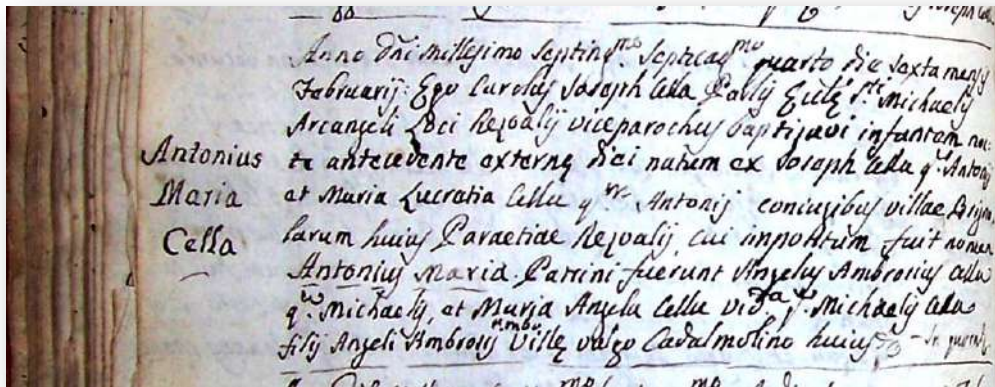 Anno dñi millesimo septing.mo septuag.mo quarto die sexta mensis
Februarij: Ego Carolus Joseph Cella Eccle S.ti Michaelis
Arcangeli Loci Rezoalij viceparochus baptizavi infantem noc-
te antecedente externe diei natum ex Joseph Cella q. Antonij
Antonius
et Maria Lucretia Cella q. Antonij coniugibus villae
Maria
larum huius Paraeciae Rezoalij cui impositum fuit nomen
Cella
Antonius Maria. Patrini fuerunt Angelus Ambrosius Cella
q. Michaelis, et Maria Angela Cella vid.a q. Michaelis Cella
filij Angeli Ambrosij Ville vulgo Cadalmolino huius